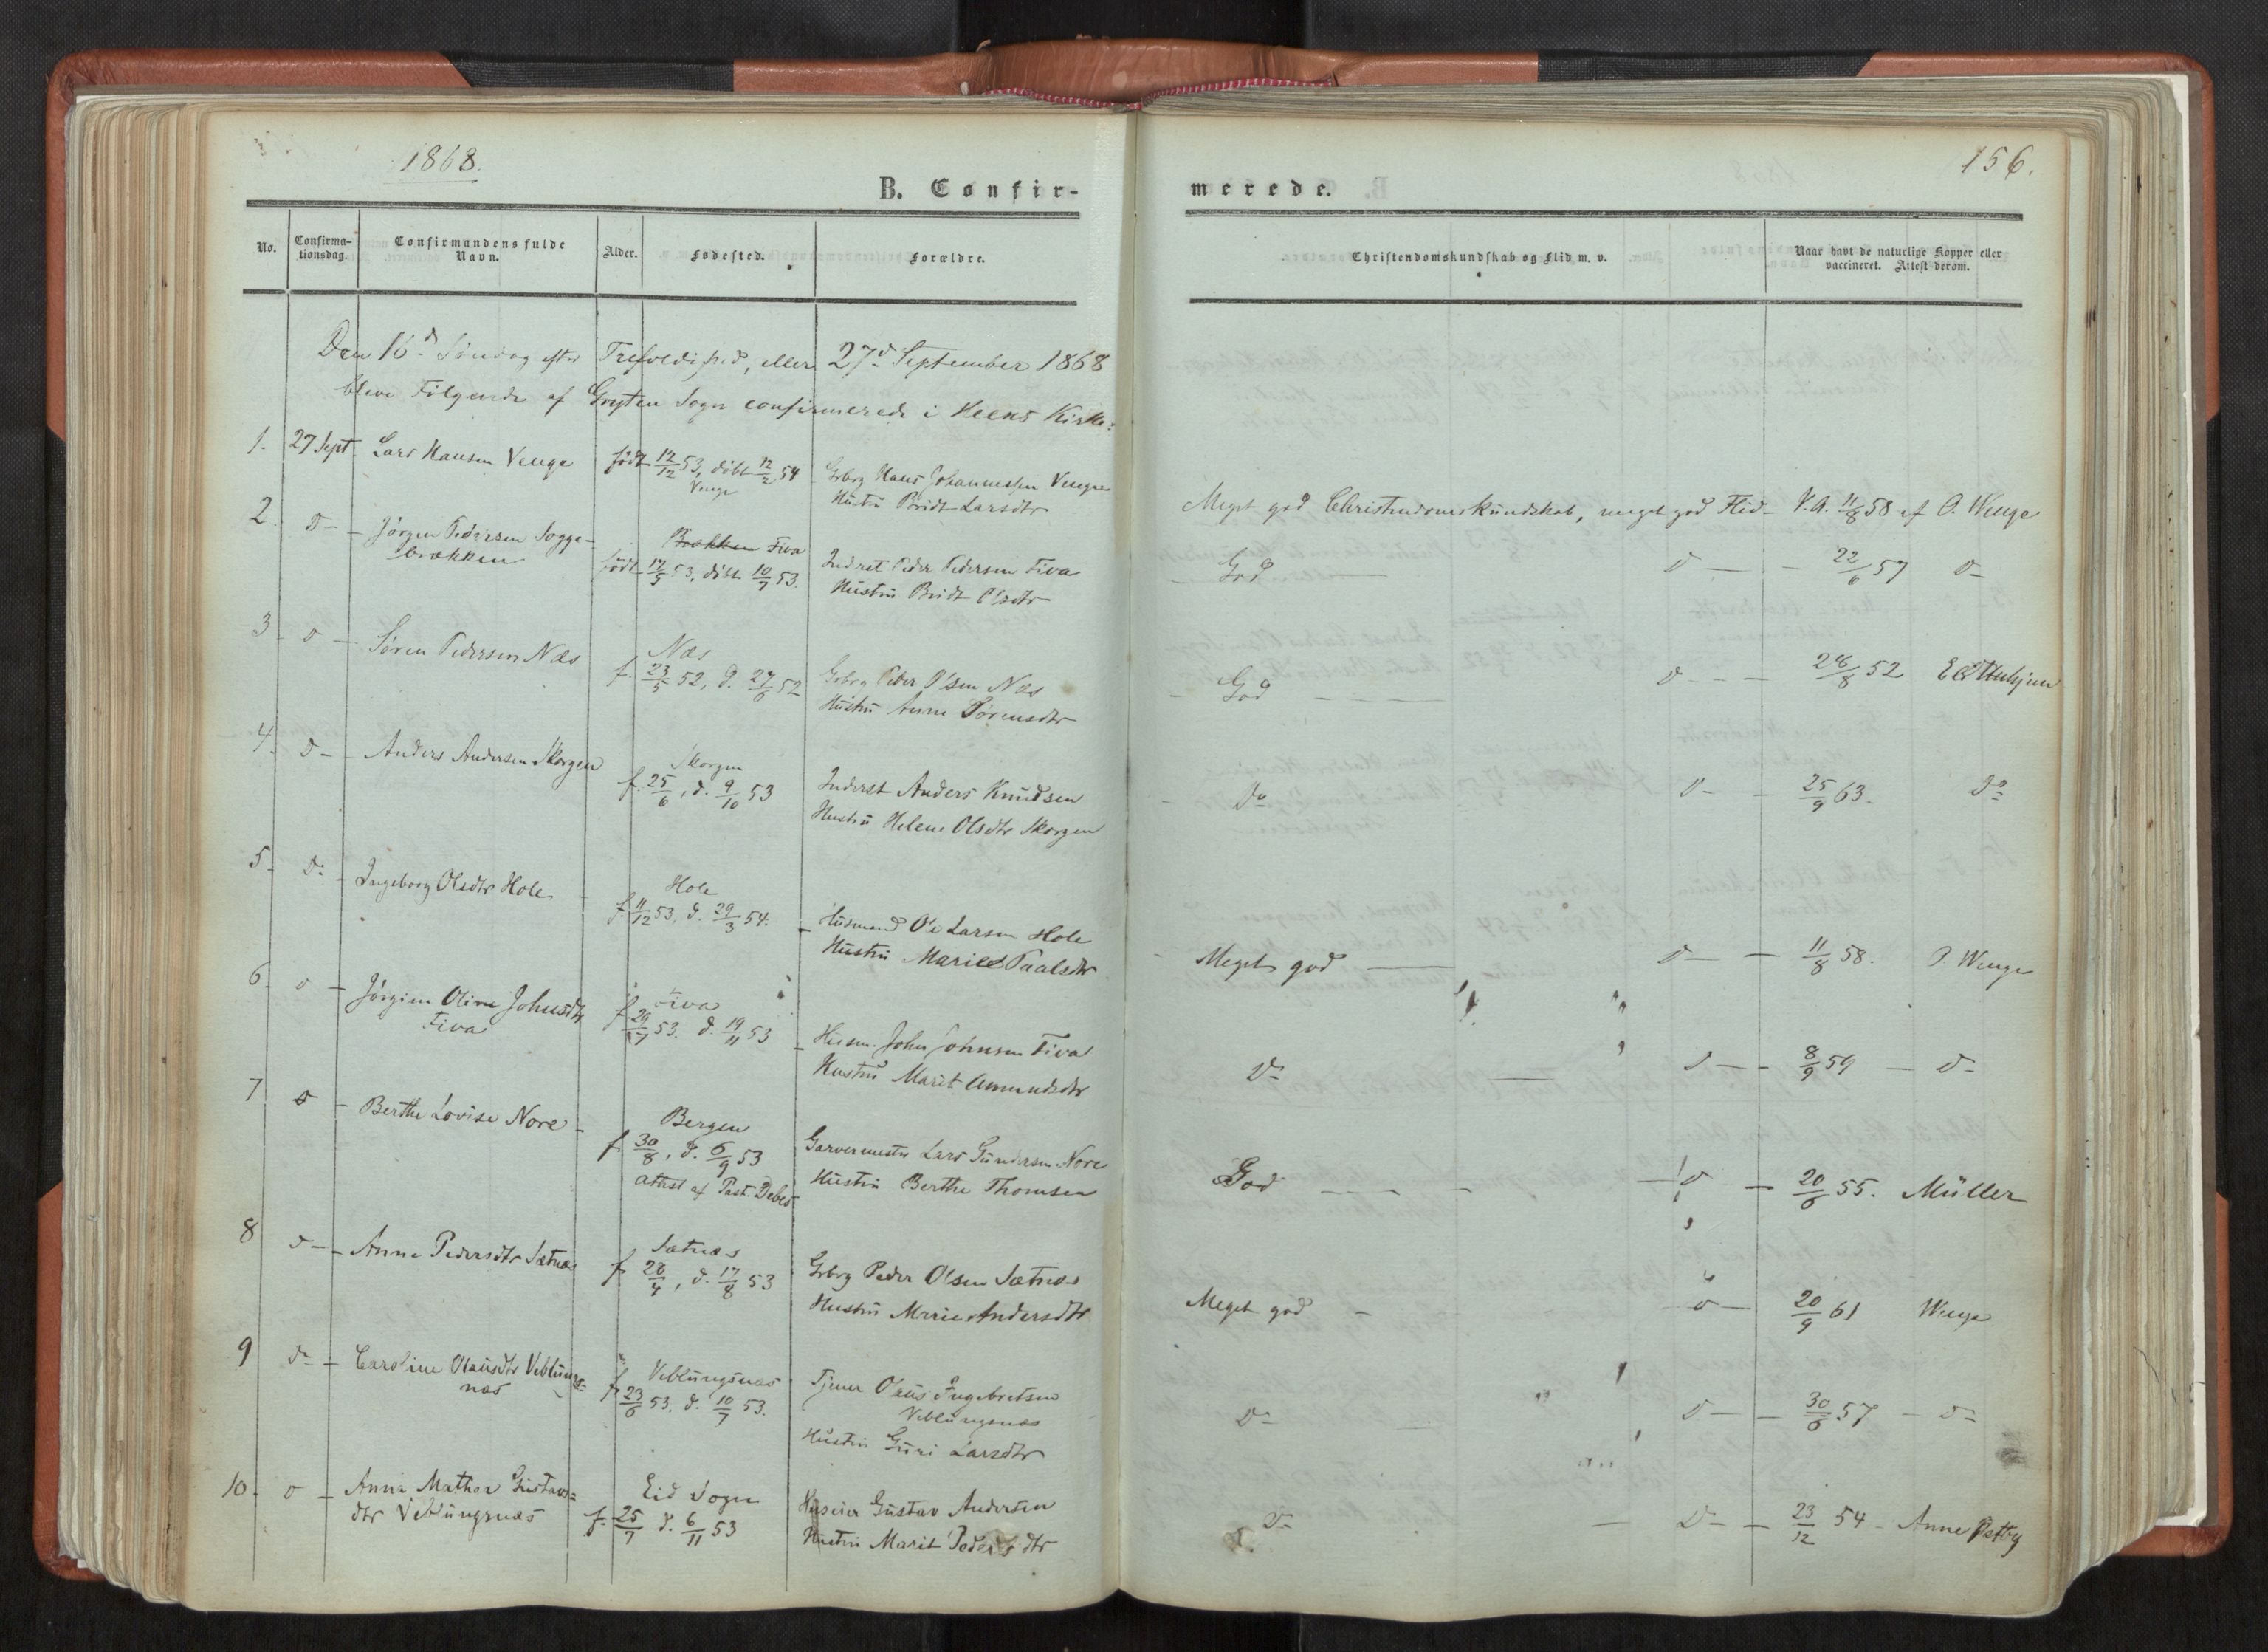 1868.
156.
B. Confir-
merede.
No.
Confirma-
tionsdag.
Confirmandens fulde
Navn.
Alder.
Fødested.
Forældre.
Christendomskundskab og Flid m. v.
Naar havt de naturlige Kopper eller
vaccineret. Attest derom.
Den 16d Søndag efter Trefoldighed, eller 27d September 1868
bleve Følgende af Gryten Sogn confirmerede i Heens Kirke:
1. 27 Sept Lars Hansen Venge født 12/12 53, døbt 12/2 54 Grbrg Hans Johannessen Venge
Venge Hustru Bridt Larsdtr
Meget god Christendomskundskab, meget god Flid - V.A. 11/8 58 af O. Wenge
2. D - Jørgen Pedersen Sogge- Brækken Fiva
brækken født 17/5 53, døbt 10/7 53. Inderst Peder Pedersen Fiva
Hustru Bridt Olsdtr
God D - 22/6 57 D -
3 D - Søren Pedersen Næs Næs
f. 23/5 52, d. 27/6 52 Grbrg Peder Olsen Næs
Hustru Anne Sørensdtr
God D - 28/8 52
4. D - Anders Andersen Skorgen Skorgen
f. 25/6, d. 9/10 53 Inderst Anders Knudsen
Hustru Helene Olsdtr Skorgen
Do D - 25/9 63. Do
5. Do - Ingeborg Olsdtr Hole Hole
f. 11/12 53, d. 29/3 54. Husmand Ole Larsen Hole
Hustru Marie Paalsdtr
Meget god D - 11/8 58. O. Wenge
6. D - Jørgine Oline Johnsdtr Fiva
Fiva f. 29/7 53. d. 19/11 53 Husm. John Johnsen Fiva
Hustru Marit Amundsdtr
Do D - 8/9 59 - D -
7 D - Berthe Lovise Nore - Bergen
f. 30/8, d. 6/9 53 Garvermester Lars Gundersen Nore
Attest af Past. Debes Hustru Berthe Thomsen
God D - 20/6 55. Müller
8 D - Anne Pedersdtr Sætnæs Sætnæs
f. 28/4, d. 17/8 53 Grbrg Peder Olsen Sætnæs
Hustru Marie Andersdtr
Meget god - D - 20/9 61 Wenge
9 Do - Caroline Olausdtr Veblungs- Veblungsnæs
næs f. 23/6 53. d. 10/7 53. Tjener Olaus Ingebretsen
Veblungsnæs
Hustru Guri Larsdtr
Do D - 30/6 57 - Do
10. D - Anna Mathea Gustavs- Eid Sogn
dtr Veblungsnæs f. 25/7 d. 6/11 53 Huseier Gustav Andersen
Hustru Marit Pedersdtr
Do D - 23/12 54 - Anne